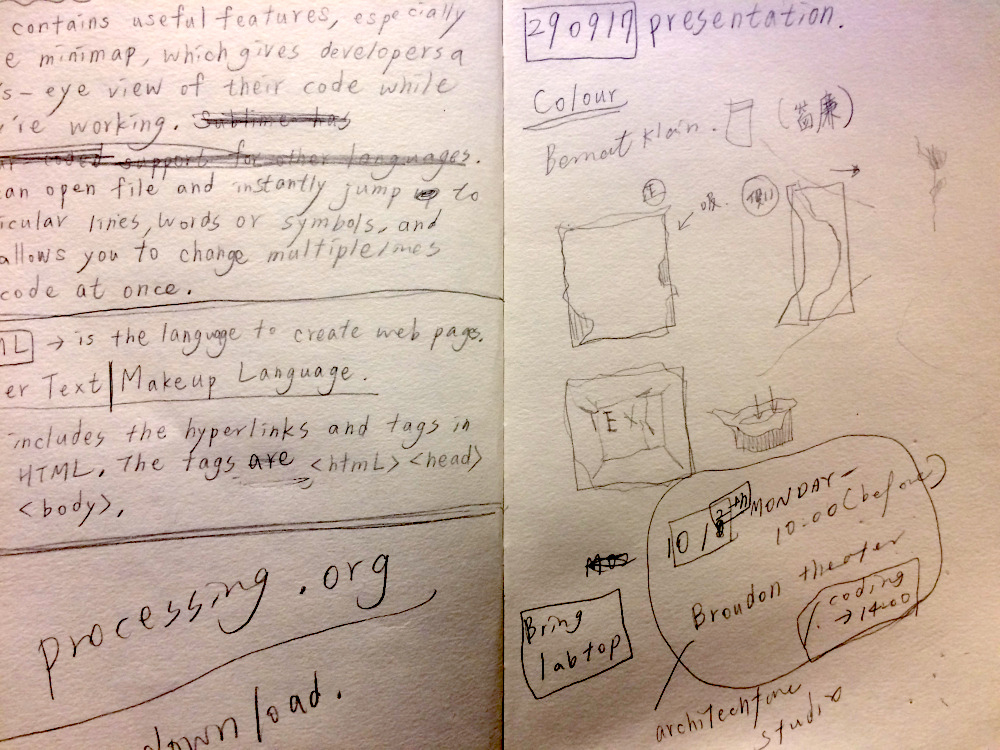 contains useful features, especially
e minimap, which gives developers a
s-eye view of their code while
're working. Sublime has
coded support for other languages.
an open file and instantly jump to
icular lines, words or symbols, and
allows you to change multiple lines
code at once.
ML → is the language to create web pages.
er Text Makeup Language.
includes the hyperlinks and tags in
HTML. The tags are <html> <head>
<body>,
processing.org
download.
290917 presentation.
Colour
Bernat Klain.
正
TEXT
MONDAY
10/2th
10:00 (before)
Broudon theater
coding
→ 14:00
Bring
labtop
architechture
studio